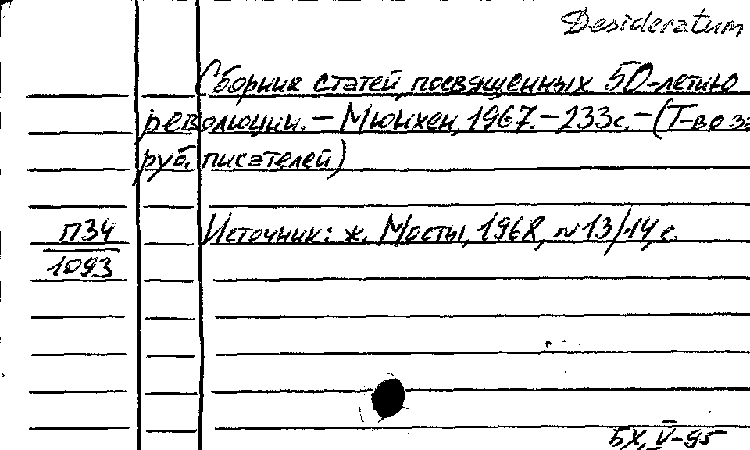 Desideratum
Сборник статей, посвященных 50-летию
революции. – Мюнхен, 1967. – 233с. – (Т-во за
руб. писателей)
Источник: ж. Мосты, 1968, №13/14, с.
П34
1093
БХ, V-95